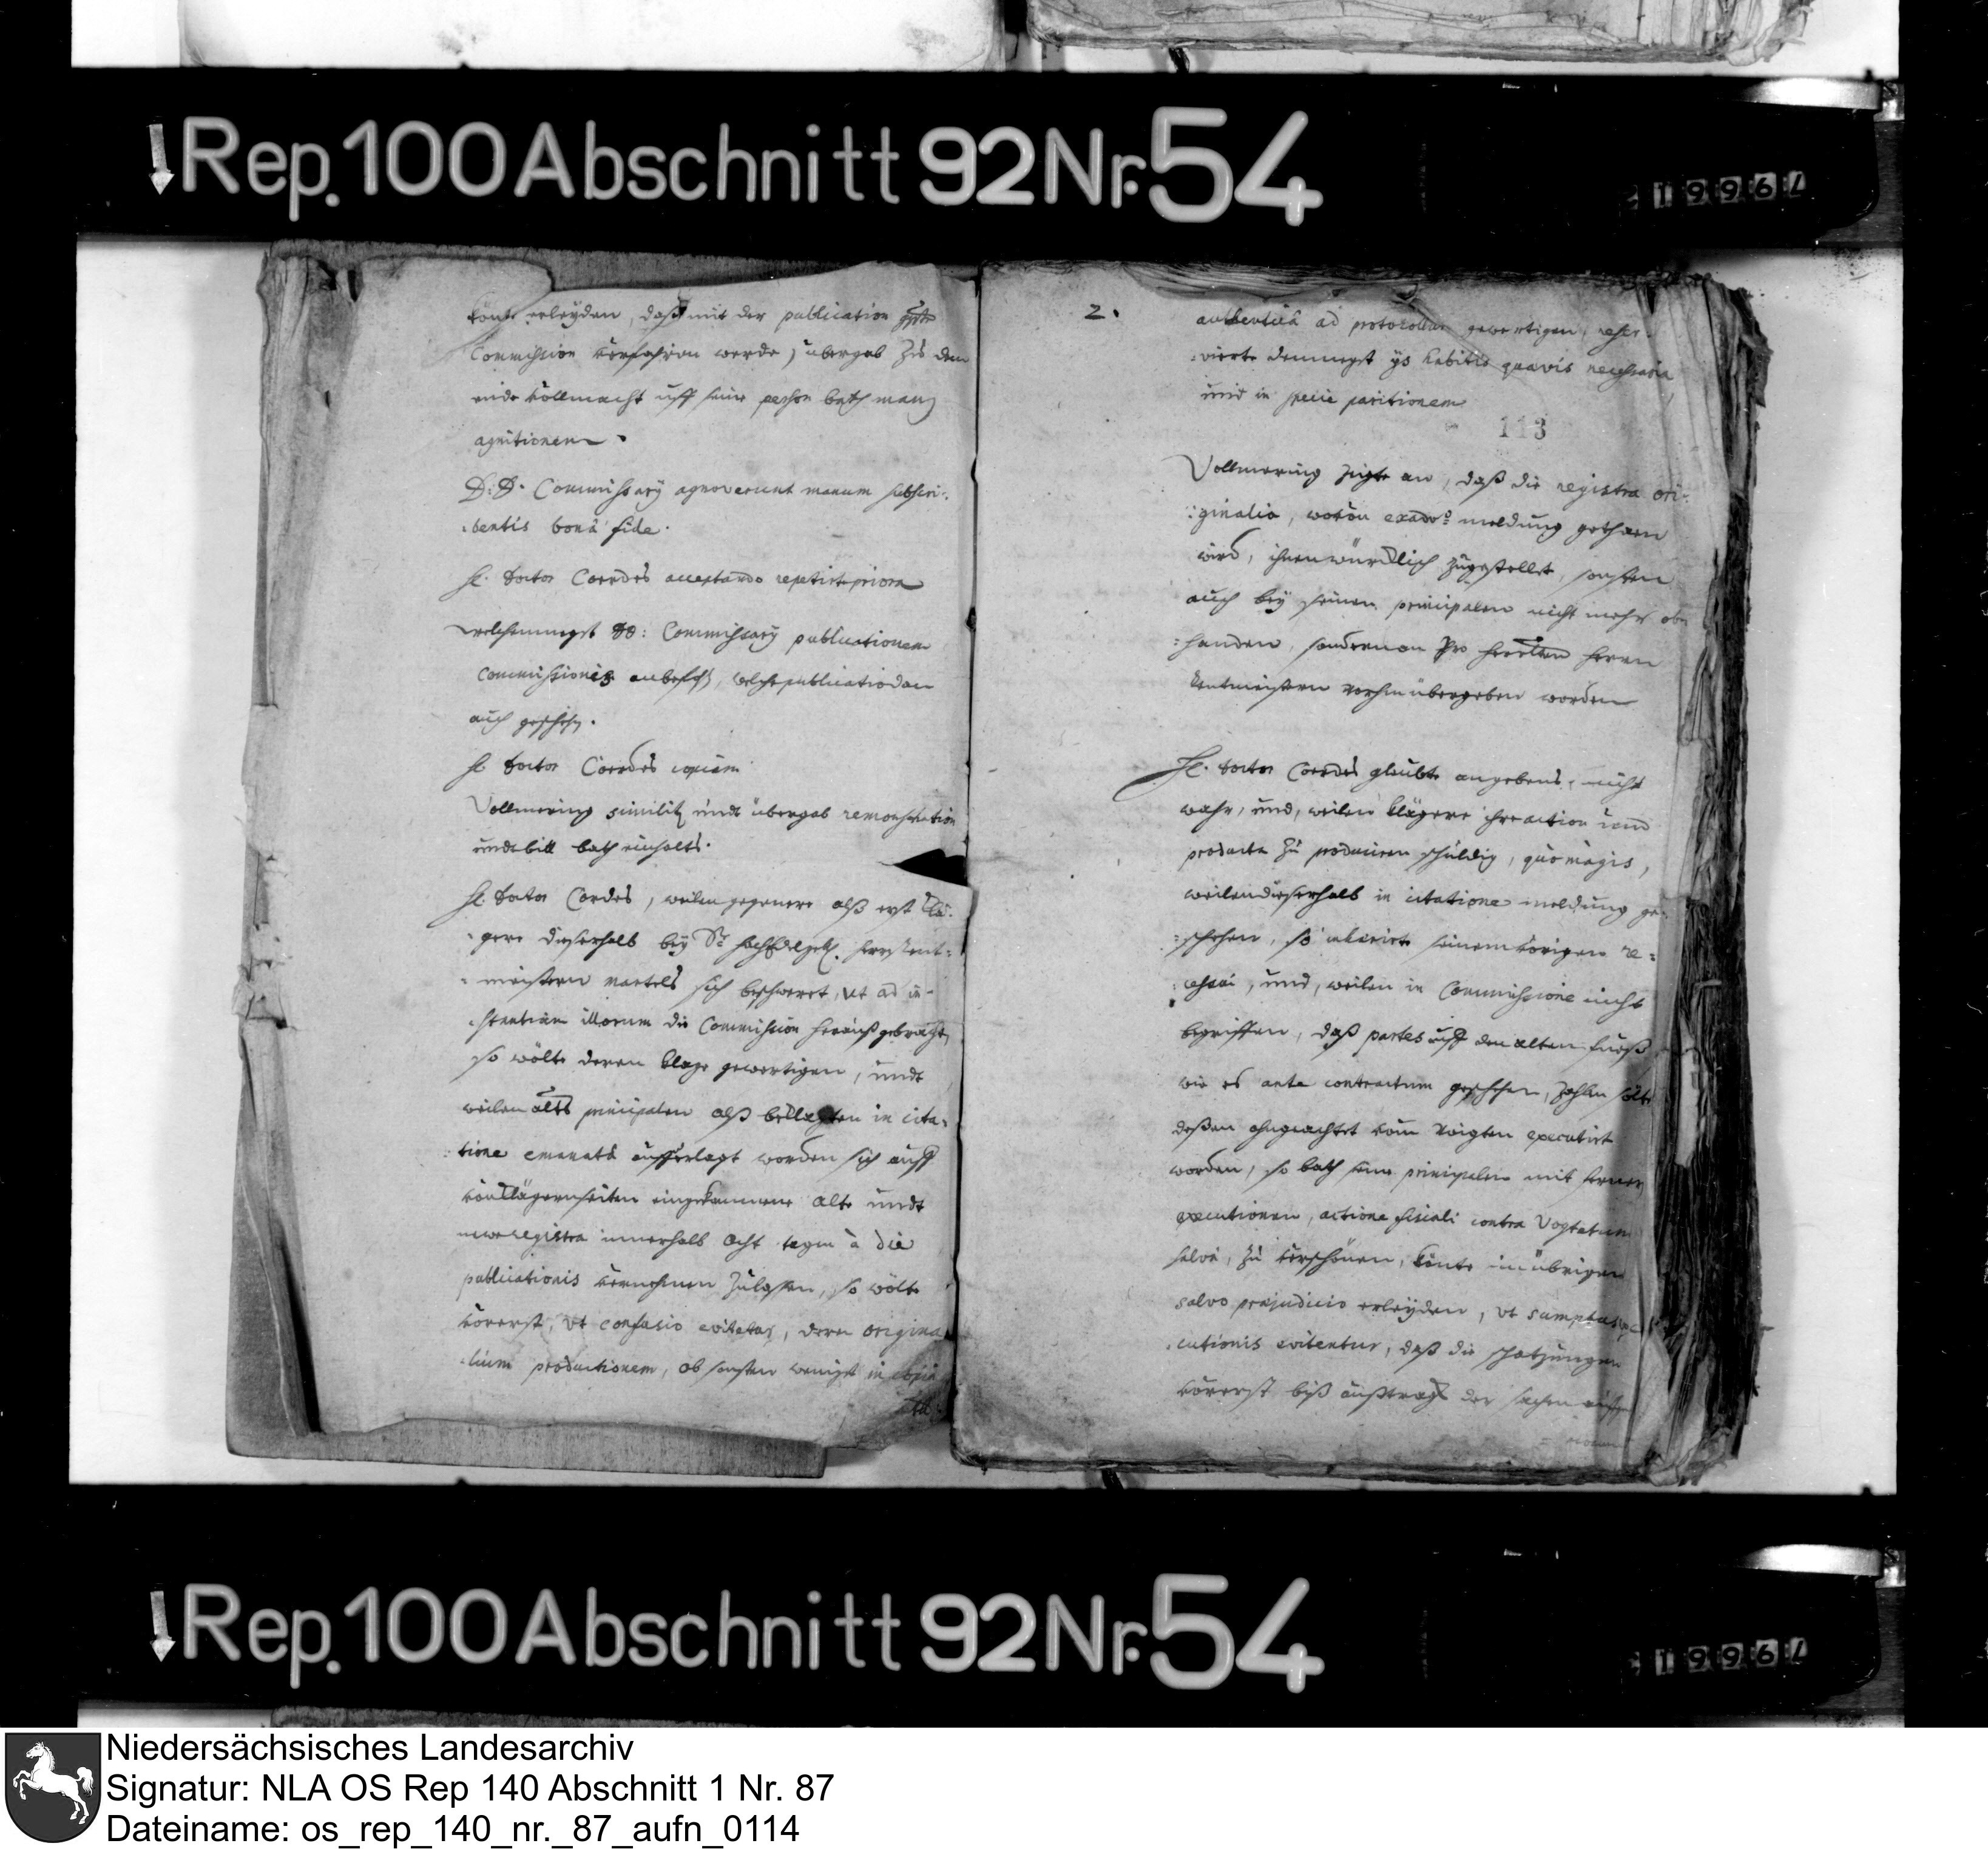 Rep. 100 Abschnitt 92 Nr. 54
19967
könte erleyden, daß mit der publication
Commission verfahren werde, übergab zu dem
ende vollmacht uff seine persohn bath manus
agnitionem.
D: D. Commissarÿ agnoverunt manum subscri-
bentis bonâ fide.
H. Doctor Cordes acceptando repetirt priora
welchemnegst DD: Commissarÿ publicationem
Commissionis anbefohlen, welche publicatio dan
auch geschehen.
H. Doctor Cordes copiam
Vollmering simili undt übergab remonstration
undt bitt bath einhalts.
H. Doctor Cordes, weilen gegenere alß erst klä-
gere dieserhalb bey Sr. herrn Rent-
meistern sich beschweret, ut ad in-
stantiam illorum die Commission heraußgebracht
so wölte deren klage gewertigen, undt
weilen principalen alß beklagten in cita-
tione emanatâ aufferlagt worden sich auff
klägernseiten eingekommene alte undt
newe registra innerhalb acht tagen à die
publicationis vernehmen zulassen, so wölte
vörerst, ut confusio evitetur, deren origina-
lium productionem, ob sonsten wenigst in copia
2.
authenticâ ad protocollum gewertigen, reser-
virte demnegst ÿs habitis quaevis necessaria
und in specie paritionem
113
Vollmering zeigte an, daß die registra ori-
ginalia, wovon ex adverso meldung gethaen
wird, ihnen würcklich zugestellet, sonsten
auch bey seinen principalen nicht mehr ob-
handen, sondern an herrn
Rentmeistern vorhin übergeben worden
H. Doctor Cordes glaubte angebens nicht
wahr, und, weilen klägere ihre action und
producta zu produciren schuldig, quo magis,
weilen dieserhalb in citatione meldung ge-
schehen, so inhaerirte seinem vorigen re-
cessui, und, weilen in Commissione nicht
begriffen, daß partes uff den alten fueß
wie es ante contractum geschehen, zahlen solte
deßen ohngeachtet vom Voigten executirt
worden, so bath seine principalen mit ferner
executionen, actione fiscali contra Vogtetum
salvâ, zu verschönen, könte im übrigen
salvo praejudicio erleyden, ut sumptus exe-
cutionis evitentur, daß die schatzungen
vörerst biß außtragt der sachen
Rep. 100 Abschnitt 92 Nr. 54
19967
Niedersächsisches Landesarchiv
Signatur: NLA OS Rep 140 Abschnitt 1 Nr. 87
Dateiname: os_rep_140_nr._87_aufn_0114